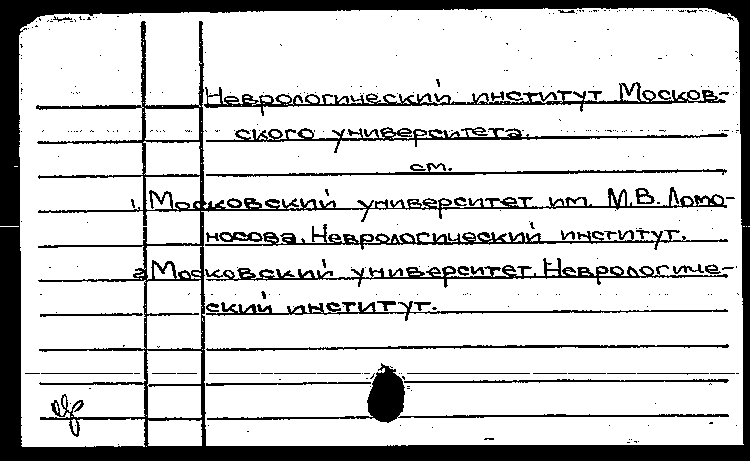 Неврологический институт Москов-
ского университета.
см.
1. Московский университет им. М.В. Ломо-
носова. Неврологический институт.
2. Московский университет. Неврологиче-
ский институт.